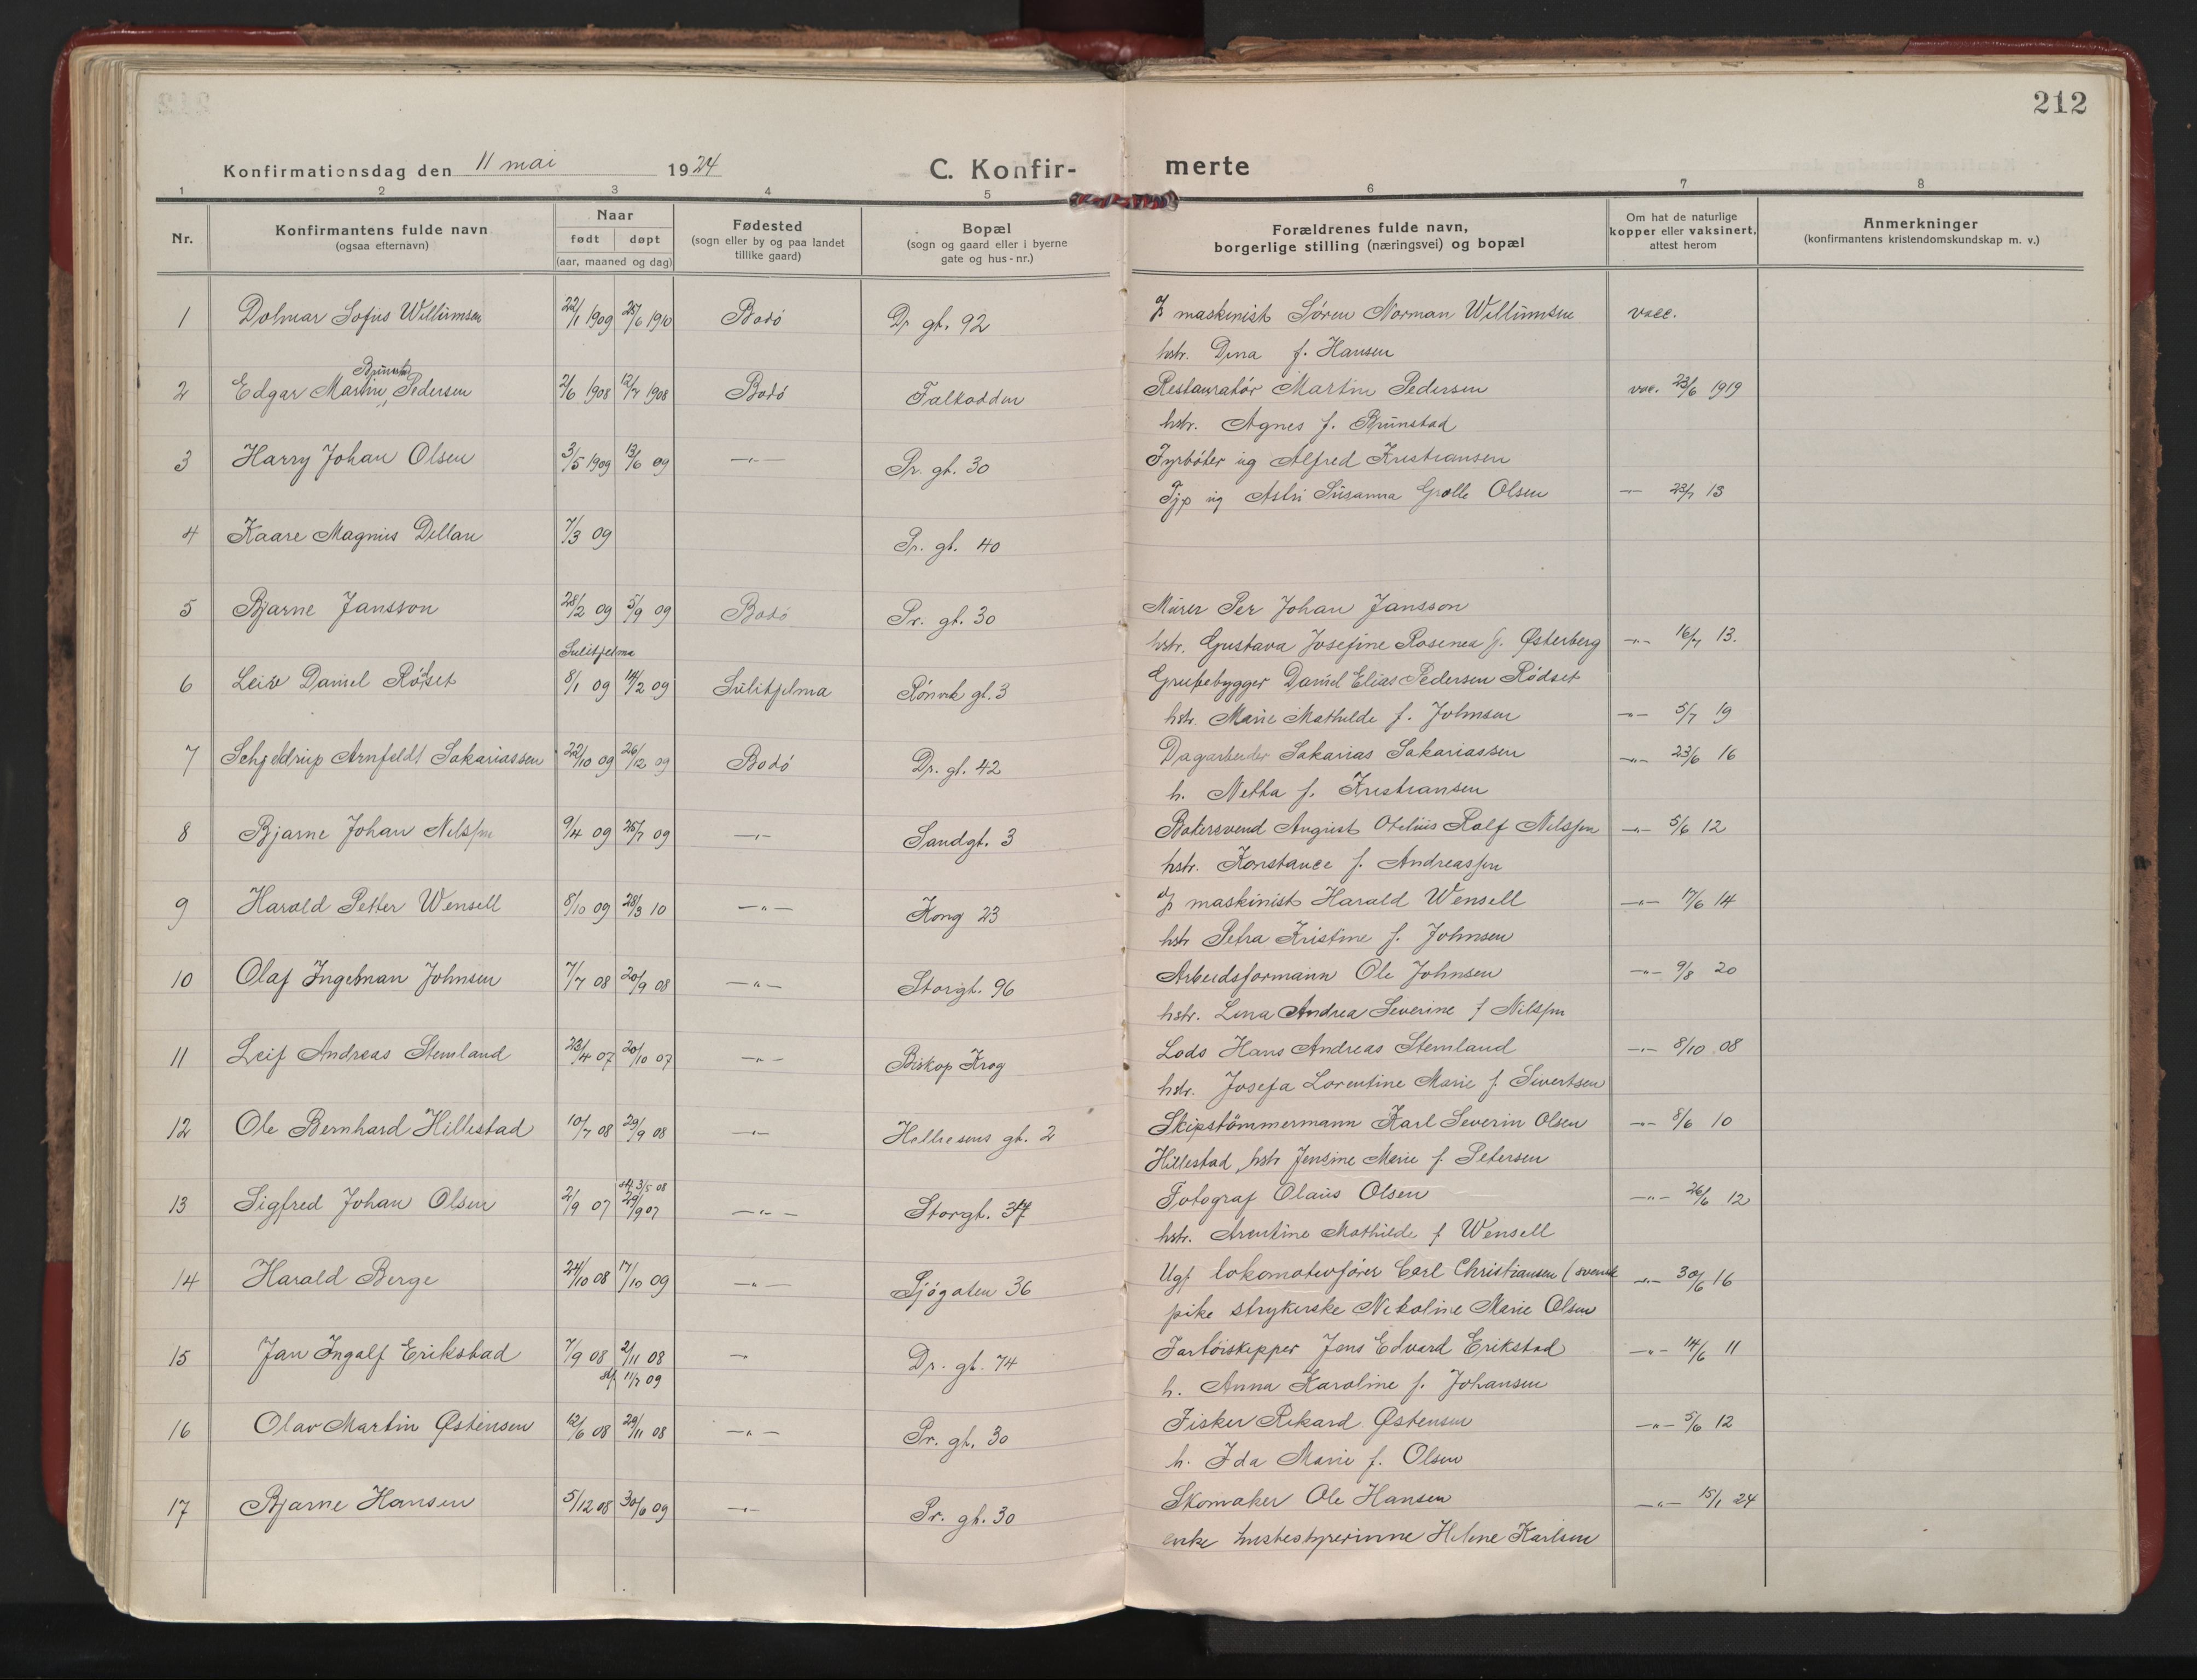 212
Konfirmationsdag den 11 mai 1924
C. Konfirmerte
1 2 3 4 5 6 7 8
Nr.
Konfirmantens fulde navn
(ogsaa efternavn)
Naar
født døpt
(aar, maaned og dag)
Fødested
(sogn eller by og paa landet
tillike gaard)
Bopæl
(sogn og gaard eller i byerne
gate og hus-nr.)
Forældrenes fulde navn,
borgerlige stilling (næringsvei) og bopæl
Om hat de naturlige
kopper eller vaksinert,
attest herom
Anmerkninger
(konfirmantens kristendomskundskap m. v.)
1 Dolmar Sofus Willumsen 22/1 1909 25/6 1910 Bodø Dr gt. 92 maskinist Søren Norman Willumsen vacc.
hstr. Dina f. Hansen
2 Edgar Martin Pedersen 2/6 1908 12/7 1908 Bodø Restauratør Martin Pedersen vac. 23/6 1919
hstr. Agnes f. Brunstad
3 Harry Johan Olsen 3/5 1909 13/6 09 —"— Pr. gt. 30 Fyrbøter ug Alfred Kristiansen
Tjp ug Astri Susanna Olsen — 23/7 13
4 Kaare Magnus Dellan 7/3 09 Pr. gt. 40
5 Bjarne Jansson 28/2 09 5/9 09 Bodø Pr. gt. 30 Murer Per Johan Jansson
hstr. Gustava Josefine Rosenea f. Østerberg —"— 16/7 13.
Sulitjelma
6 Leiv Daniel 8/1 09 14/2 09 Sulitjelma Rønvik gt. 3 Grubebygger Daniel Elias Pedersen Rødset
hstr. Marie Mathilde f. Johnsen —"— 5/7 19
7 Schjeldrup Arnfeldt Sakariassen 22/10 09 26/12 09 Bodø Dr. gt. 42 Dagarbeider Sakarias Sakariassen —"— 23/6 16
h. Netta f. Kristiansen
8 Bjarne Johan Nilssen 9/4 09 25/7 09 —"— Sandgt. 3 August Otelius Rolf Nilssen —"— 5/6 12
hstr. Konstance f. Andreassen
9 Harald Petter Wensell 8/10 09 28/3 10 —"— Kong 23 maskinist Harald Wensell —"— 17/6 14
hstr Petra Kristine f. Johnsen
10 Olaf Ingelman Johnsen 7/7 08 20/9 08 —"— Storgt. 96 Arbeidsformann Ole Johnsen —"— 9/8 20
hstr. Lina Andrea Severine f Nilssen
11 Leif Andreas Stemland 23/4 07 20/10 07 —"— Biskop Krog Lods Hans Andreas Stemland —"— 8/10 08
hstr. Josefa Lorentine Marie f. Sivertsen
12 Ole Bernhard Hillestad 10/7 08 29/9 08 —"— Hellresens gt. 2 Skipstømmermann Karl Severin Olsen —"— 8/6 10
Hillestad, hstr Jensine Marie f. Petersen
stf. 3/5 08
13 Sigfred Johan Olsen 2/9 07 29/9 07 —"— Storgt. Fotograf Olaus Olsen —"— 26/6 12
hstr. Arentine Mathilde f Wensell
14 Harald Berge 24/10 08 17/10 09 —"— Sjøgaten 36 Ugf lokomotivfører Carl Christiansen (svensk —"— 30/6 16
pike strykerske Nikoline Marie Olsen
15 Jan Ingalf Erikstad 7/9 08 2/11 08 —"— Dr. gt. 74 Fartøiskipper Jens Edvard Erikstad —"— 14/6 11
stf 11/7 09 h. Anna Karoline f. Johansen
16 Olav Martin Østensen 12/6 08 29/11 08 —"— Pr. gt. 30 Fisker Rikard Østensen —"— 5/6 12
h. Ida Marie f. Olsen
17 Bjarne Hansen 5/12 08 30/6 09 —"— Pr. gt. 30 Skomaker Ole Hansen —"— 15/1 24
enke husbestyrerinne Helene Karlsen